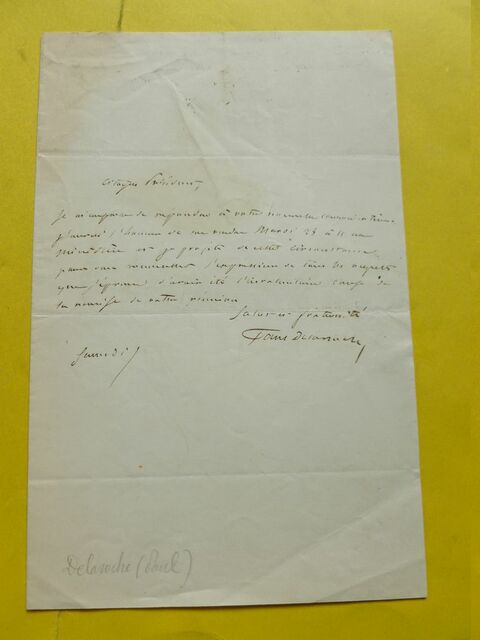 Citoyen Président,
Je m'empresse de répondre à votre nouvelle convocation.
j'aurai l'honneur de me rendre Mardi 28 à
Ministère et je profite de cette circonstance
pour vous renouveller l'expression de tous les regrets
que j'éprouve d'avoir été l'involontaire cause de
la remise de notre réunion
Salut et fraternité
Paul Delaroche
Samedi
Delaroche (Paul)